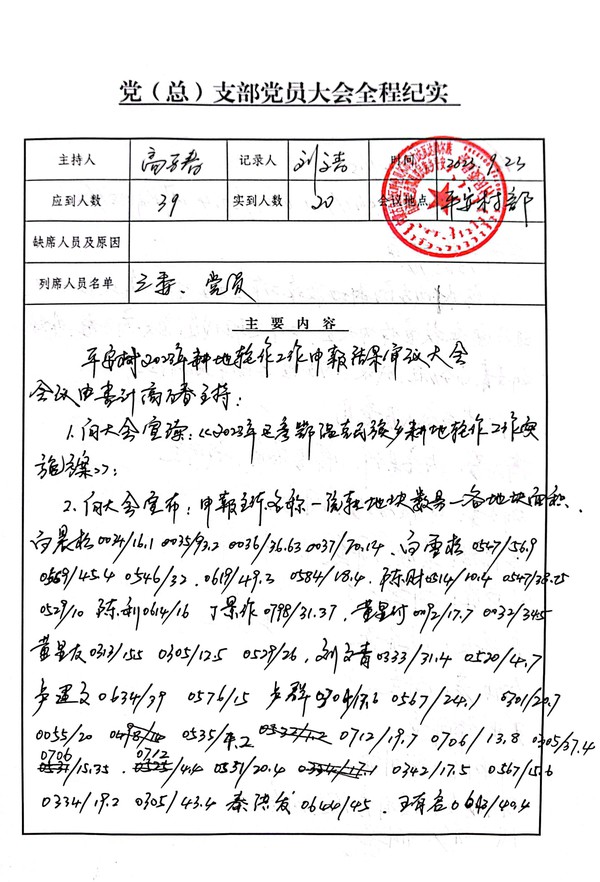 党（总）支部党员大会全程纪实
主持人 高万春 记录人 刘文青 时间 2023.9.23
应到人数 39 实到人数 20 会议地点 平安村部
缺席人员及原因
列席人员名单 三委、党员
主要内容
平安村2023年耕地轮作工作申报结果审议大会
会议由书记高万春主持：
1.向大会宣读：《2023年巴彦鄂温克民族乡耕地轮作工作实
施方案》；
2.向大会宣布：申报主体名称—统轮地块数量—各地块面积.
白晨松0024/16.1 0035/93.2 0036/36.63 0037/70.14 、白雪松 0547/56.9
0569/45.4 0546/32 、0619/49.2 0584/18.4 、陈财0314/10.4 0547/38.25
0529/10 陈利0614/16 丁景作0798/31.37 、黄星付0092/17.7 0032/34.5
黄星友0313/15.5 0305/12.5 0529/26 、刘文青0333/31.4 0520/4.7
0634/39 0576/15 0567/24.1 0301/20.7
0055/20 0535/ 0712/19.7 0706/13.8 0305/37.4
0706 0712
/15.35 . /4.4 0551/20.4 0342/17.5 0567/15.6
0334/19.2 0305/43.4 秦洪发0644/45 、王有启0643/40.4